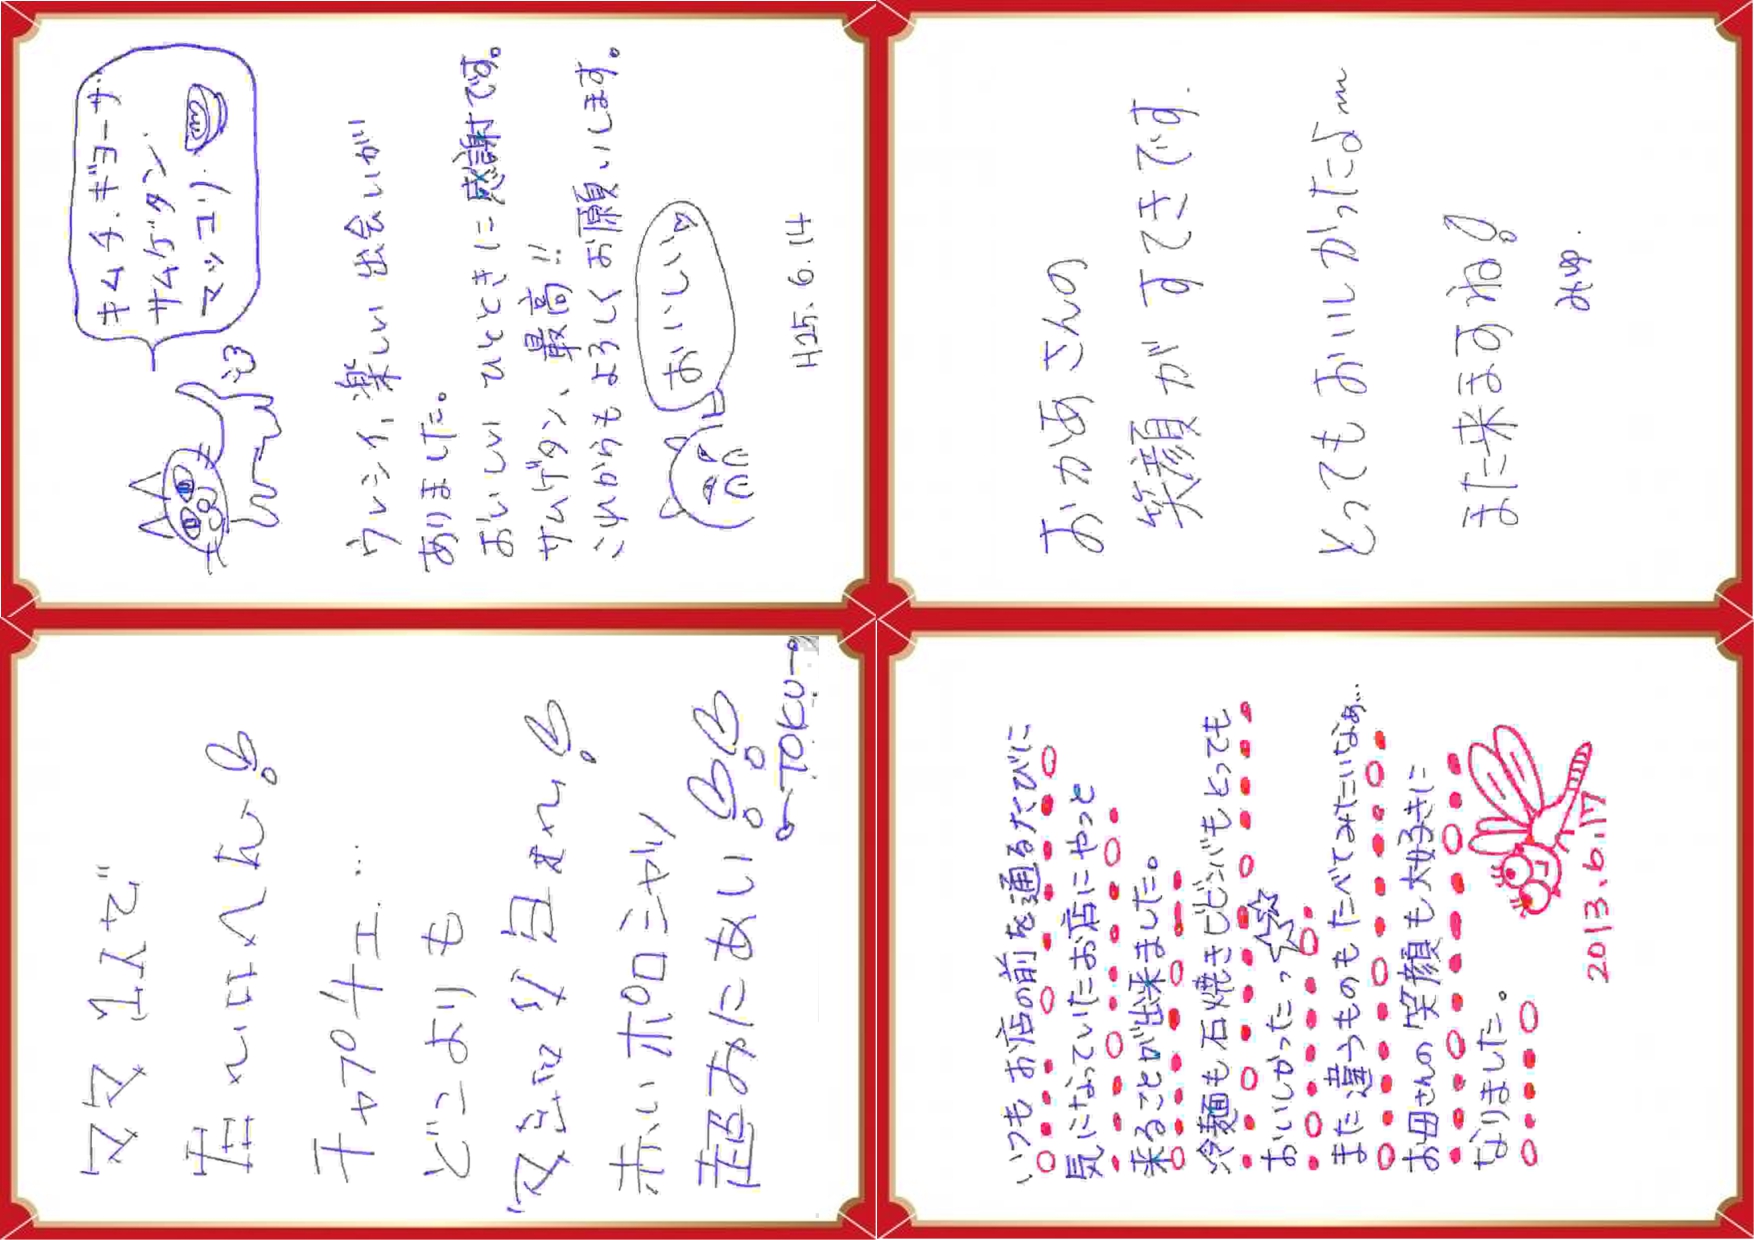 キムチ.ギョーザ.
サムゲタン.
マッコリ.
ウンシイ、楽しい出会いが
ありました。
おいしいひとときに感謝です。
サムゲタン、最高!!
これからもよろしくお願いします。
おいしい
H25.6.14
おかあさんの
笑顔がすてきです.
とってもおいしかったよ〜
また来ますね!
みゆ.
ママ 1人で
チャプチェ…
どこよりも
赤いポロシャツ
超みにあい!!
TOKU
いつもお店の前を通るたびに
気になっていたお店にやっと
来ることが出来ました。
冷麺も石焼きビビンバもとっても
おいしかったっ☆☆
また違うものもたべてみたいなぁ…
お母さんの笑顔も大好きに
なりました。
2013.6.17